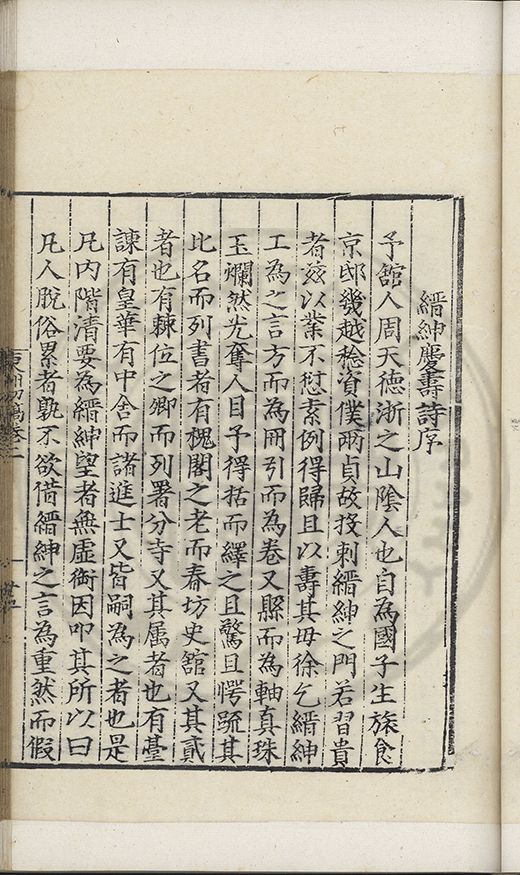 縉紳慶壽詩序
予舘人周天德浙之山陰人也自為國子生旅食
京邸幾越稔資僕兩貞故投刺縉紳之門若習貴
者兹以業不愆素例得歸且以壽其母徐乞縉紳
工為之言方而為冊引而為卷又縣而為軸真珠
玉爛然光奪人目予得括而繹之且驚且愕䟽其
比名而列書者有槐閣之老而春坊史舘又其貳
者也有棘位之卿而列署分寺又其属者也有臺
諫有皇華有中舍而諸進士又皆嗣為之者也是
凡内階清要為縉紳望者無虚銜因叩其所以曰
凡人脱俗累者孰不欲借縉紳之言為重然而假